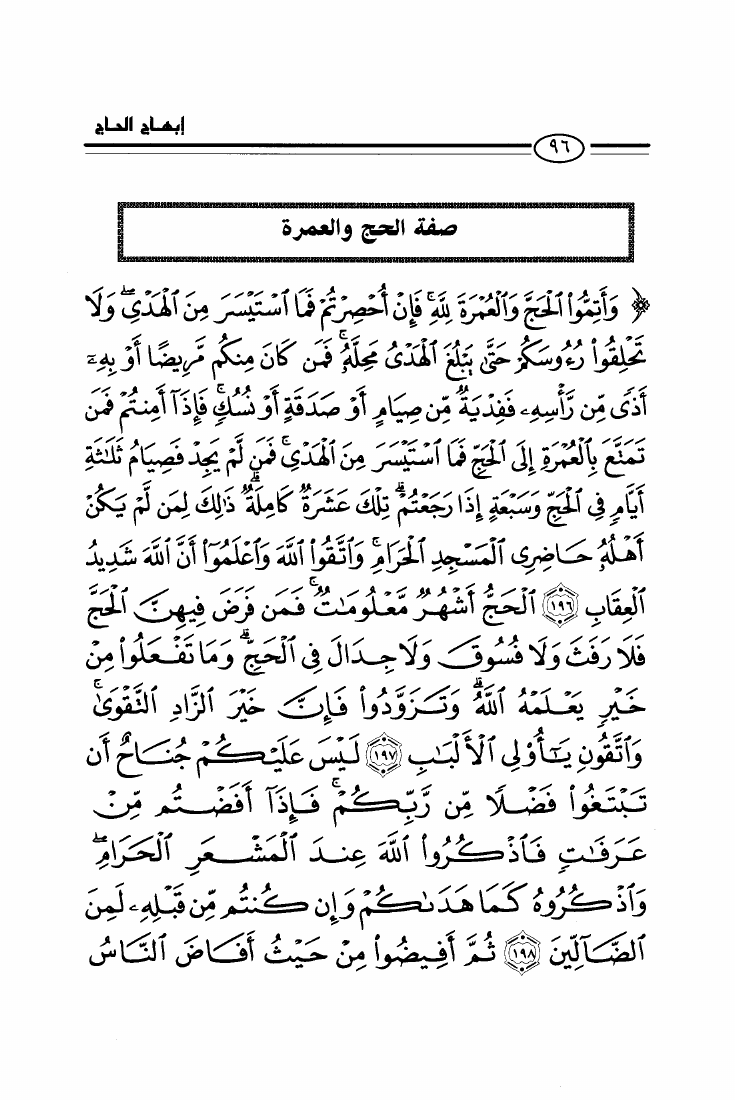 إبهاج الحاج
٩٦
صفة الحج والعمرة
﴿ وَأَتِمُّوا۟ ٱلْحَجَّ وَٱلْعُمْرَةَ لِلَّهِ ۚ فَإِنْ أُحْصِرْتُمْ فَمَا ٱسْتَيْسَرَ مِنَ ٱلْهَدْىِ ۖ وَلَا
تَحْلِقُوا۟ رُءُوسَكُمْ حَتَّىٰ يَبْلُغَ ٱلْهَدْىُ مَحِلَّهُۥ ۚ فَمَن كَانَ مِنكُم مَّرِيضًا أَوْ بِهِۦٓ
أَذًى مِّن رَّأْسِهِۦ فَفِدْيَةٌ مِّن صِيَامٍ أَوْ صَدَقَةٍ أَوْ نُسُكٍ ۚ فَإِذَآ أَمِنتُمْ فَمَن
تَمَتَّعَ بِٱلْعُمْرَةِ إِلَى ٱلْحَجِّ فَمَا ٱسْتَيْسَرَ مِنَ ٱلْهَدْىِ ۚ فَمَن لَّمْ يَجِدْ فَصِيَامُ ثَلَٰثَةِ
أَيَّامٍ فِى ٱلْحَجِّ وَسَبْعَةٍ إِذَا رَجَعْتُمْ ۗ تِلْكَ عَشَرَةٌ كَامِلَةٌ ۗ ذَٰلِكَ لِمَن لَّمْ يَكُنْ
أَهْلُهُۥ حَاضِرِى ٱلْمَسْجِدِ ٱلْحَرَامِ ۚ وَٱتَّقُوا۟ ٱللَّهَ وَٱعْلَمُوٓا۟ أَنَّ ٱللَّهَ شَدِيدُ
ٱلْعِقَابِ ١٩٦ ٱلْحَجُّ أَشْهُرٌ مَّعْلُومَٰتٌ ۚ فَمَن فَرَضَ فِيهِنَّ ٱلْحَجَّ
فَلَا رَفَثَ وَلَا فُسُوقَ وَلَا جِدَالَ فِى ٱلْحَجِّ ۗ وَمَا تَفْعَلُوا۟ مِنْ
خَيْرٍ يَعْلَمْهُ ٱللَّهُ ۗ وَتَزَوَّدُوا۟ فَإِنَّ خَيْرَ ٱلزَّادِ ٱلتَّقْوَىٰ ۚ
وَٱتَّقُونِ يَٰٓأُو۟لِى ٱلْأَلْبَٰبِ ١٩٧ لَيْسَ عَلَيْكُمْ جُنَاحٌ أَن
تَبْتَغُوا۟ فَضْلًا مِّن رَّبِّكُمْ ۚ فَإِذَآ أَفَضْتُم مِّنْ
عَرَفَٰتٍ فَٱذْكُرُوا۟ ٱللَّهَ عِندَ ٱلْمَشْعَرِ ٱلْحَرَامِ ۖ
وَٱذْكُرُوهُ كَمَا هَدَىٰكُمْ وَإِن كُنتُم مِّن قَبْلِهِۦ لَمِنَ
ٱلضَّآلِّينَ ١٩٨ ثُمَّ أَفِيضُوا۟ مِنْ حَيْثُ أَفَاضَ ٱلنَّاسُ